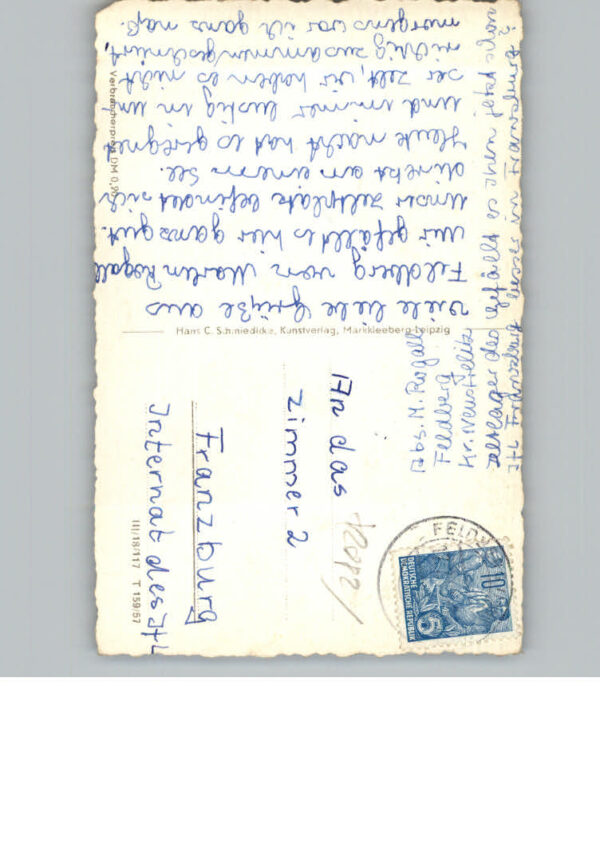 Viele liebe Grüße aus
Feldberg von Martin Rogall
Mir gefällt es hier ganz gut.
Unser Zeltplatz befindet sich
direkt an einem See.
Heute nacht hat es geregnet
und immer lustig in un
ser Zelt, wir haben es nicht
richtig zusammengeschnürt,
morgens war ich ganz naß.
Verbraucherpreis DM 0,90
Hans C. Schmiedicke, Kunstverlag, Markkleeberg-Leipzig
Abs. M. Rogall
Feldberg
Kr. Neustrelitz
Zeltlager des
Franzburg
An das
Zimmer 2
Franzburg
Internat des
III/18/117 T 159/57
FELDB
DEUTSCHE
DEMOKRATISCHE REPUBLIK
10
5